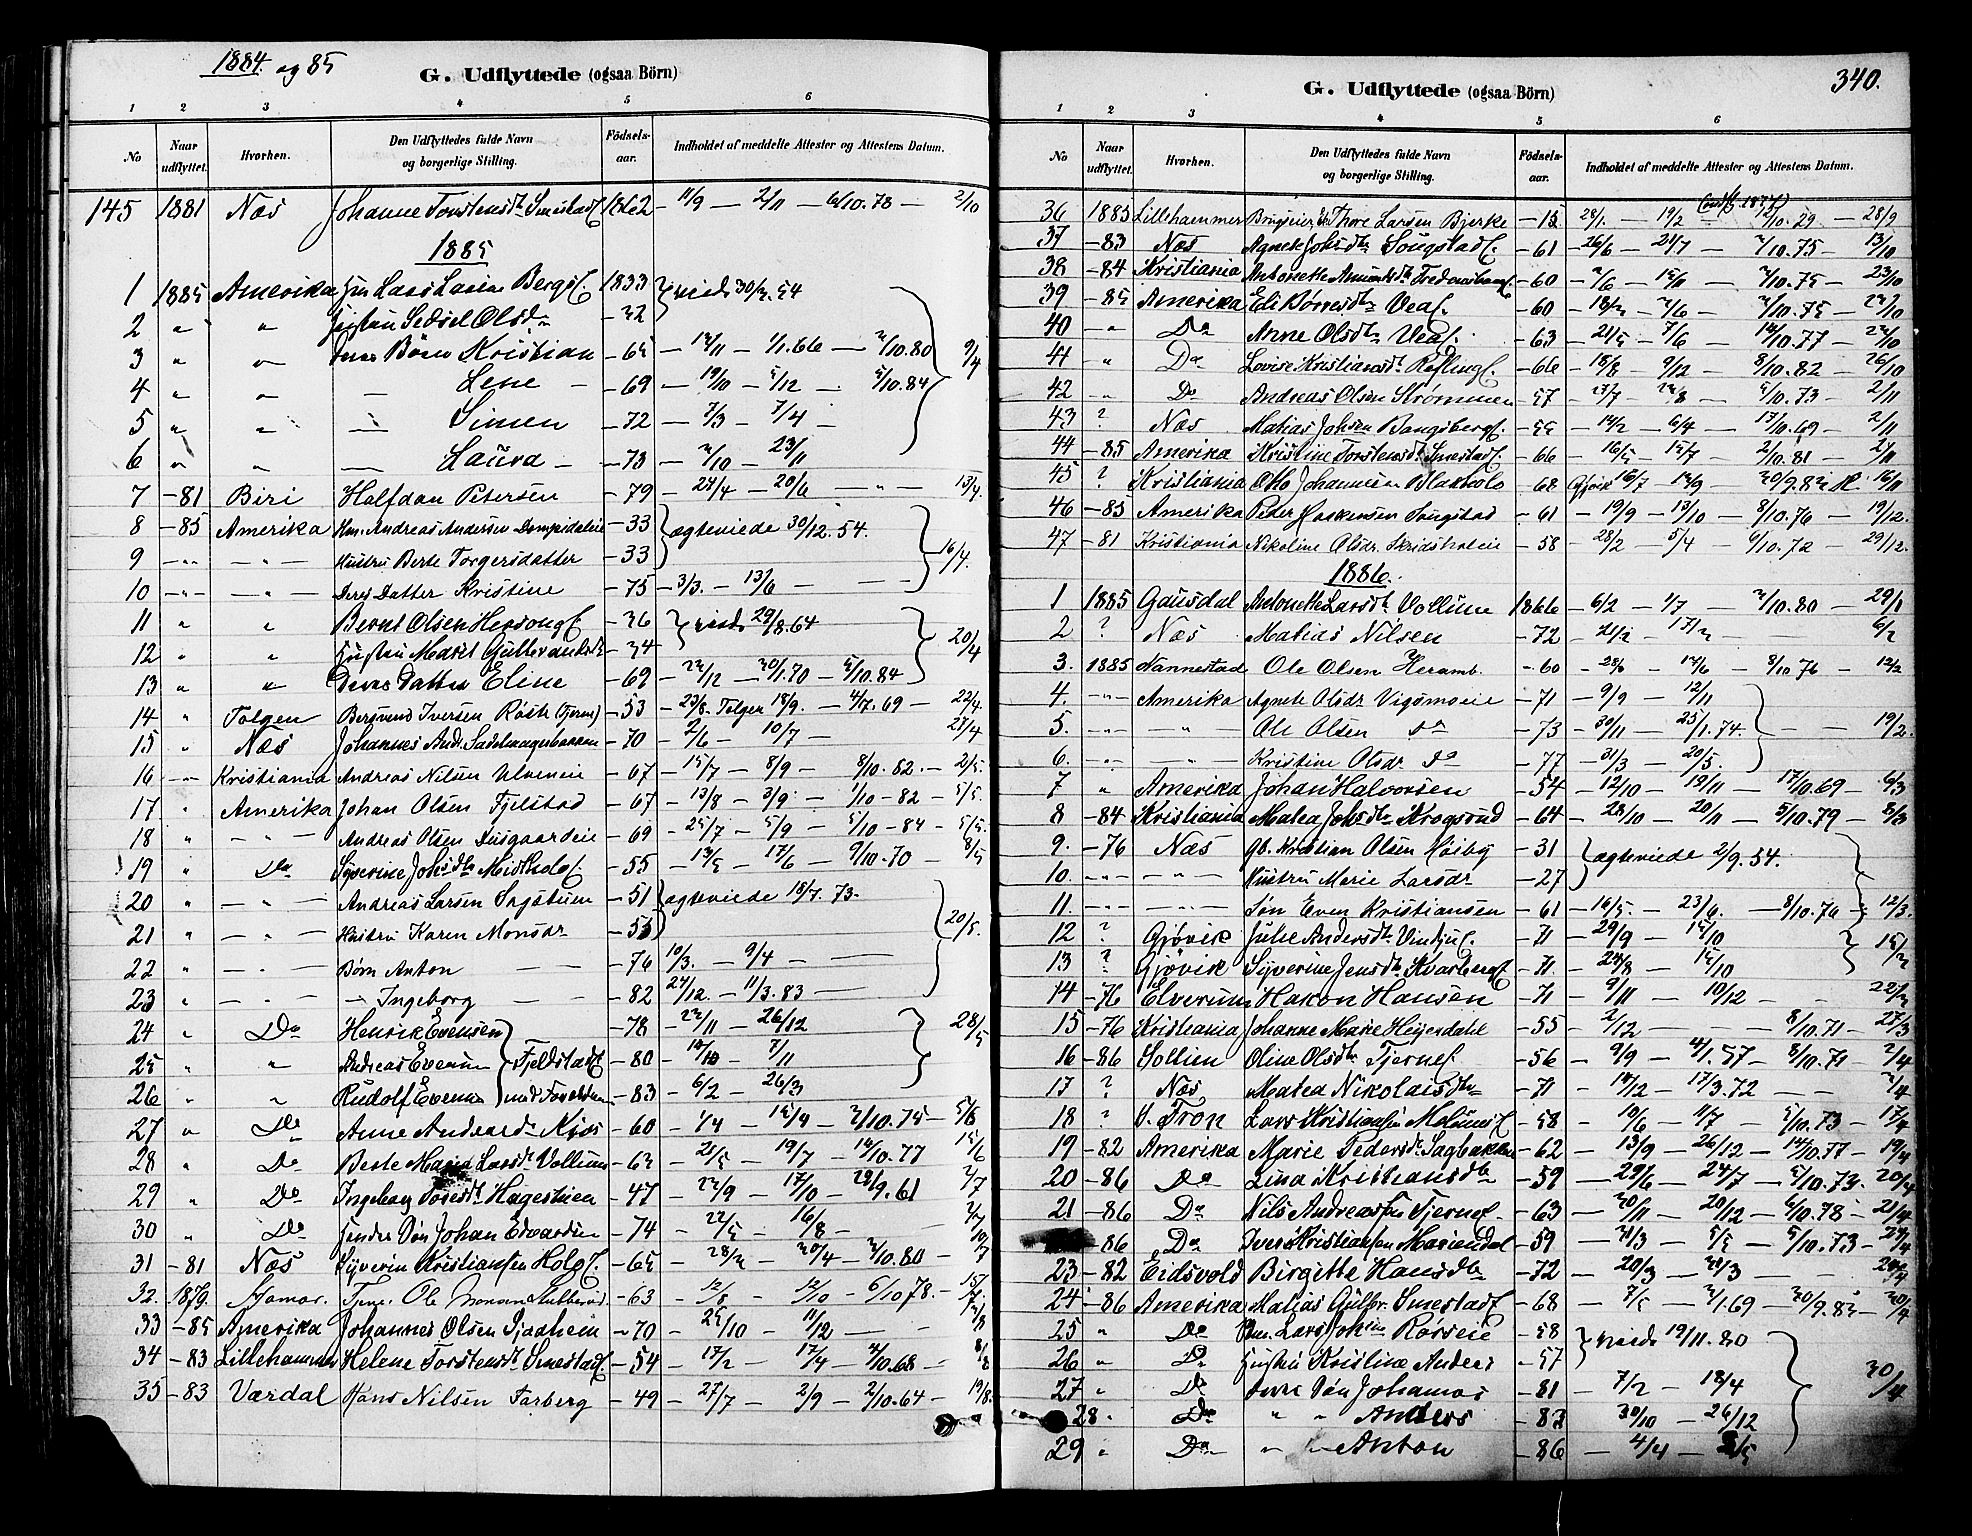 1884 og 85
G. Udflyttede (ogsaa Börn)
1 2 3 4 5 6
No Naar udflyttet. Hvorhen. Den Udflyttedes fulde Navn og borgerlige Stilling. Födsels-aar. Indholdet af meddelte Attester og Attestens Datum.
145 1881 Næs Johanne Torstensdt. Smestad 1862 11/9 — 2/11 — 6/10.78 — 2/10
1885
1 1885 Amerika Lars Larsen Berg 1833 viede 30/12 54
2 " " Sidsel Olsd. -32
3 " " Deres Børn Kristian -65 — 12/11 — 1/1.66 — 2/10.80 9/4
4 " " — Lene — -69 — 19/10 — 5/12 — 5/10.84
5 " " — Simen -72 — 7/3 — 7/4 —
6 " " — Laura — -73 — 2/10 — 23/11
7 -81 Biri Halfdan Petersen -79 — 27/4 — 20/6 — " — 15/4.
8 -85 Amerika Andreas Andersen -33 ægteviede 30/12. 54.
9 -"- -"- Hustru Berte Torgersdatter -33 16/4.
10 -"- -"- Deres Datter Kristine -75 — 3/3. — 13/6 — —
11 " " Bernt Olsen -36 viede 29/8.64
12 " " Hustru Marit -34 20/4
13 " " Deres Datter Eline -69 — 22/12 — 30/1.70 — 5/10.84
14 " Tolgen Bersvend Iversen Røste -53 — 23/8. Tolgen 18/9. — 4/7.69 — 22/4.
15 " Næs Johannes And. -70 — 2/6 — 10/7 — 27/4
16 -"- Kristiania Andreas Nilsen Ulveneie -67 — 15/7 — 8/9 — 8/10.82. — 2/5.
17 " Amerika Johan Olsen Fjelstad -67 — 13/8 — 3/9 — 1/10-82 — 5/5.
18 " -"- Andreas Olsen Disgaardeie -69 — 25/7 — 5/9 — 5/10-84 — 5/5.
19 " Do Syverine Johsdtr. Midthols -55 — 14/5 — 17/6 — 9/10.70 — 8/5
20 " -"- Andreas Larsen -51 ægteviede 18/7. 73.
21 " -"- Hustru Karen Monsdr -55 20/5.
22 " -"- Børn Anton — — -76 10/3. — 9/4 — —
23 " -"- — Ingeborg — — -82 27/12. — 11/3.83 —
24 " Do Henrik Evensen -78 — 22/11 — 26/12 28/5
25 " " Andreas Evensen Fjeldstad -80 — 10/10 — 7/11
26 " " Rudolf Evensen -83 — 6/2 — 26/3
27 " Do Anne Kjos -60 — 1/4 — 15/4 — 2/10.75 — 5/6
28 " Do Berte Maria Larsdt. Vollum -63 — 21/5 — 19/7 — 14/10.77 15/6
29 " Do Ingeborg Hagestuen -47 — 22/9 — 17/10 — 29/9.61 2/7
30 " Do Søn Johan Edvardsen -74 — 22/5 — 16/8 — 2/7
31 -81 Næs Syverin Kristiansen Hols -65 — 28/2 — 30/4 — 2/10.80 — 10/7
32. 1879. Hamar. Ole -63 — 12/8 — 12/10 — 6/10 78. — 15/7.
33 -85 Amerika Johannes Olsen -70 — 25/10 — 11/12 —
34 -83 Lillehammer Helene Torstensdt. Smestad -54 — 17/2 — 17/4 — 4/10.68 — 8/8
35 -83 Værdal Hans Nilsen Farberg -49 — 27/7 2/9 — 2/10.64 — 19/8.
G. Udflyttede (ogsaa Börn) 340.
1 2 3 4 5 6
No Naar udflyttet. Hvorhen. Den Udflyttedes fulde Navn og borgerlige Stilling. Födsels-aar. Indholdet af meddelte Attester og Attestens Datum.
36 1885 Lillehammer Thore Larsen Bjerke -15 28/1. — 19/2 — 10.29 — 28/9
37 -83 Næs Agnete Johsdtr. Sougstad -61 — 26/6 — 21/7 — 2/10.75 — 13/10
38 -84 Kristiania Antonette -60 — 2/6 — 15/11 — 2/10.75 — 23/10
39 -85 Amerika Eli Veas. -60 — 18/3 — 2/6 — 2/10.75 — 22/10
40 -"- Do Anne Olsdtr. Veas. -63 — 21/5 — 7/6 — 14/10.77 — 22/10
41 " Do Lovise Kristiansdt. Refling -66 — 18/8 — 9/12 — 8/10.82 — 26/10
42 -"- Do Andreas Olsen Strømmen -57 — 27/7 — 24/8 — 5/10.73 — 2/11
43 ? Næs Matias Johsen Bangsberg -55 — 14/2 — 6/4 — 17/10.69 — 2/11
44 -85 Amerika Kristine Torstensdt. Smestad -66 — 16/5 — 15/7 — 2/10.81 — 2/11
45 ? Kristiania Otto Johannesen -68 Gjøvik 16/7 — 14/9 — 30/9.83 16/11
46 -85 Amerika Peder Haakensen Sougstad -61 — 19/9 — 13/10 — 8/10.76 — 19/12.
47 -81 Kristiania Nikoline Olsdr. Skridsholeie -58 — 28/2 — 5/4 — 6/10.72 — 29/12.
1886.
1 1885 Gausdal Antonette Larsdtr. Vollum 1866 — 6/2 — 1/7 — 2/10.80 — 29/1
2 ? Næs Matias Nilsen -72 — 21/2 — 17/3 — 6/2
3. 1885 Nannestad Ole Olsen Heramb. -60 — 28/6 — 14/6 — 8/10 76 — 12/2
4. -"- Amerika Agnete Olsdr Vigsmoeie -71 — 9/9 — 12/11
5. -"- -"- Ole Olsen Do -73 — 30/11 — 25/1.74. — 19/2.
6. -"- -"- Kristine Olsdr. Do -77 — 31/3 — 20/5.
7 " Amerika Johan Halvorsen -54 — 12/10 — 19/11 — 17/10.69 — 6/3
8 -84 Kristiania Matea Johsdtr. Krogsrud -64 — 28/10 — 20/11 — 5/10.79 — 8/3
9. -76 Næs Gb. Kristian Olsen Høiby -31 ægteviede 2/9.54.
10. -"- -"- Hustru Marie Larsdr -27
11. -"- -"- Søn Even Kristiansen -61 — 16/5. — 23/6. — 8/10.76 — 12/3.
12 ? Gjøvik Julie Andersdtr. Vindju -71 — 29/9 — 15/10 15/3
13 ? Gjøvik Syverine Jensdtr. Kvarberg -71 — 27/8 — 15/10
14 -76 Elverum Hakon Hansen -71 — 9/11 — 10/12 — — 22/3
15 -76 Kristiania Johanne Marie Heyerdahl -55 — 2/12 — — 8/10.71 — 27/3
16 -86 Sollien Oline Olsdtr. Tjerne -56 — 9/9 — 4/1.57 — 8/10.71 — 2/4
17 ? Næs Matea Nikolaisdtr -71 — 14/12 — 17/3.72 — — 2/4
18 ? V. Fron Lars Kristiansen -58 — 10/6 — 11/7 — 5/10.73 — 17/4
19 -82 Amerika Marie Pedersdt. Sagbakken -62 — 13/9 — 26/12 — 14/10.77 — 19/4
20 -86 Do Lina Kristiansdtr -59 — 29/6 — 24/7 — 5/10.73. — 20/4
21 -86 Do Nils Andreassen Tjerne -63 — 30/11 — 20/12 — 6/10.78 — 21/4
86 Do Iver Kristiansen Mariendal -59 — 21/3 — 5/5 — 5/10.73 — 29/4
23 -82 Eidsvold Birgitte Hansdtr -72 — 20/3 — 24/3 — —
24 -86 Amerika Matias Gulbr. Smestad -68 — 7/5 — 2/1.69 — 30/9.83 — 30/4
25 " Do Lars Johsen Røiseie -58 viede 19/11.80
26 " Do Hustru Kristine Anders -57
27 " Do Deres Søn Johannes -81 — 7/2 — 18/4 30/4
28. " Do " " Anders -83 — 30/10 — 26/12
29 " Do " " Anton -86 — 4/4 — 2/5